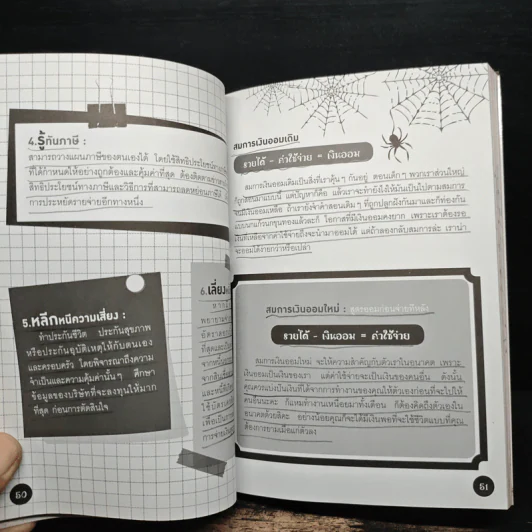 4.รู้ทันภาษี :
สามารถวางแผนภาษีของตนเองได้ โดยใช้สิทธิประโยชน์ทาง
ที่ได้กำหนดให้อย่างถูกต้องและคุ้มค่าที่สุด ต้องติดตามข่าวสาร
สิทธิประโยชน์ทางภาษีและวิธีการที่สามารถลดหย่อนภาษีได้
การประหยัดรายจ่ายอีกทางหนึ่ง
5.หลีกหนีความเสี่ยง :
ทำประกันชีวิต ประกันสุขภาพ
หรือประกันอุบัติเหตุให้กับตนเอง
และครอบครัว โดยพิจารณาถึงความ
จำเป็นและความคุ้มค่านั้นๆ ศึกษา
ข้อมูลของบริษัทที่จะลงทุนให้มาก
ที่สุด ก่อนการตัดสินใจ
6.เลี่ยง
50
สมการเงินออมเดิม
รายได้ - ค่าใช้จ่าย = เงินออม
สมการเงินออมเดิมเป็นสิ่งที่เราคุ้นๆ กันอยู่ ตอนเด็กๆ พวกเราส่วนใหญ่
ก็ถูกสอนมาแบบนี้ แต่ปัญหาก็คือ แล้วเราจะทำยังไงให้มันเป็นไปตามสมการ
เงินออมให้เหลือ ถ้าเรายังจำคำสอนเดิมๆ ที่ถูกปลูกฝังกันมาและก็ท่องกัน
แบบนกแก้วนกขุนทองแล้วละก็ โอกาสที่มีเงินออมคงยาก เพราะเราต้องรอ
เงินที่เหลือจากค่าใช้จ่ายถึงจะนำมาออมได้ แต่ถ้าลองกลับสมการล่ะ เราน่า
จะออมได้ง่ายกว่าหรือเปล่า
สมการเงินออมใหม่ : สูตรออมก่อนจ่ายทีหลัง
รายได้ - เงินออม = ค่าใช้จ่าย
สมการเงินออมใหม่ จะให้ความสำคัญกับตัวเราในอนาคต เพราะ
เงินออมเป็นเงินของเรา แต่ค่าใช้จ่ายจะเป็นเงินของคนอื่น ดังนั้น
คุณควรแบ่งเงินที่ได้จากการทำงานของคุณให้ตัวเองก่อนที่จะไปให้
คนอื่นนะคะ ก็แหมทำงานเหนื่อยมาทั้งเดือน ก็ต้องคิดถึงตัวเองใน
อนาคตด้วยสิคะ อย่างน้อยคุณก็จะได้มีเงินพอที่จะใช้ชีวิตแบบที่คุณ
ต้องการยามเมื่อแก่ตัวลง
51